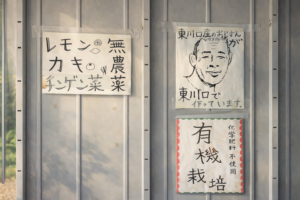 無農薬
レモン
カキ
チンゲン菜
東川口産のおじさんが
東川口で
作っています。
有機
栽培
化学肥料不使用